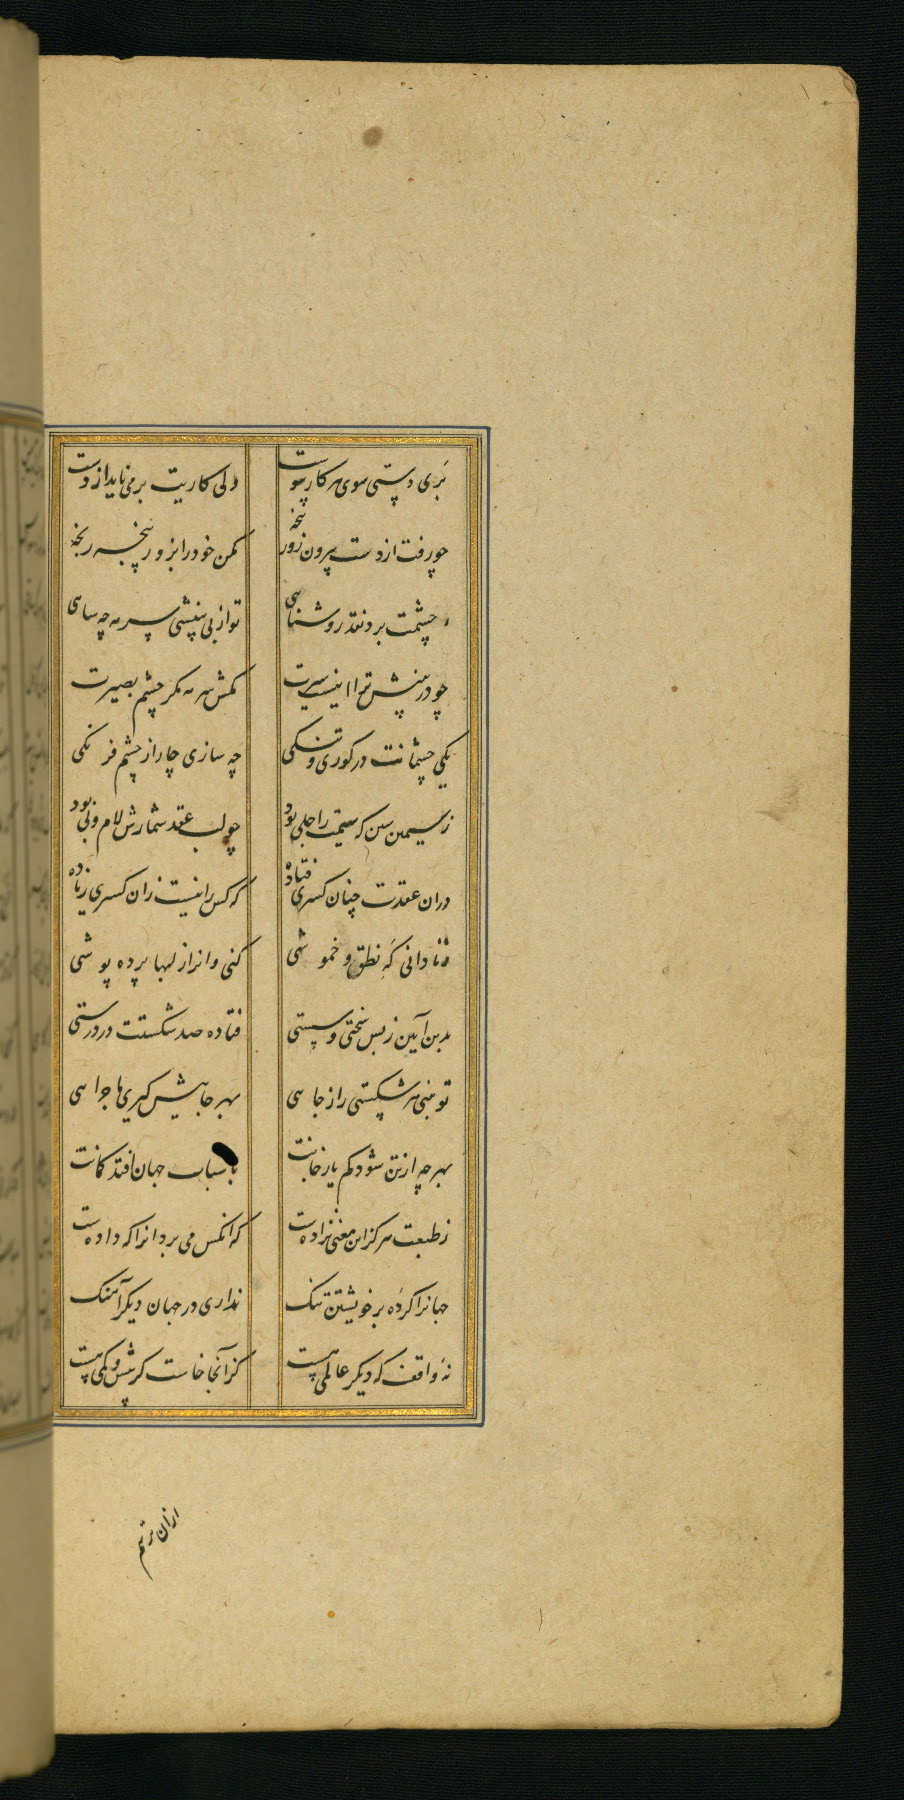 بری دستی سوی هر کار پیوست ولی کاریت بر می ناید از دست
چو رفت از دست بیرون زور پنجه مکن خود را بزور پنجه رنجه
ز چشمت برد نقد روشنایی تو از بی بینشی سرمه چه سایی
چو در بینش ترا اینست سیرت مکش سرمه مگر چشم بصیرت
یکی چشمانت در کوری و تنگی چه سازی چار از چشم فرنگی
ز سیمین سن که سیمت را جلی بود چو لب عقد شمارش لام و بی بود
در آن عقدت چنان کسری فتاده که کس را نیست زان کسری زیاده
ز نادانی گه نطق و خموشی کنی وانرا ز لبها پرده پوشی
بدین آیین ز بس سختی و سستی فتاده صد شکستت در درستی
تو بینی هر شکستی را ز جایی بهر جاییش گیری ماجرایی
بهر چه از تن شود کم یا ز جانت باسباب جهان افتد گمانت
ز طبعت هرگز این معنی نزادست که آنکس می برد آنرا که دادست
جهانرا کرده بر خویشتن تنگ نداری در جهان دیگر آهنگ
نه واقف که دیگر عالمی هست کز آنجا خاست گر بیش و کمی هست
از آن برتر